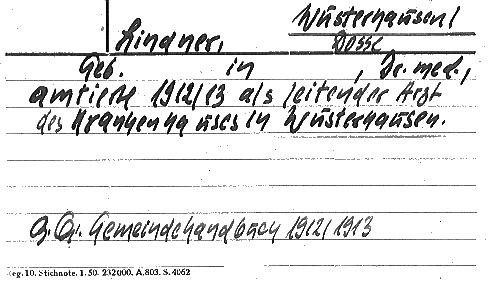 Wusterhausen/
Lindner, Dosse
Geb. in , Dr. med.,
amtierte 1912/13 als leitender Arzt
des Krankenhauses in Wusterhausen.
Gemeindehandbuch 1912/1913
eg. 10. Stichnote. 1. 50. 232000. A. 803. S. 4062